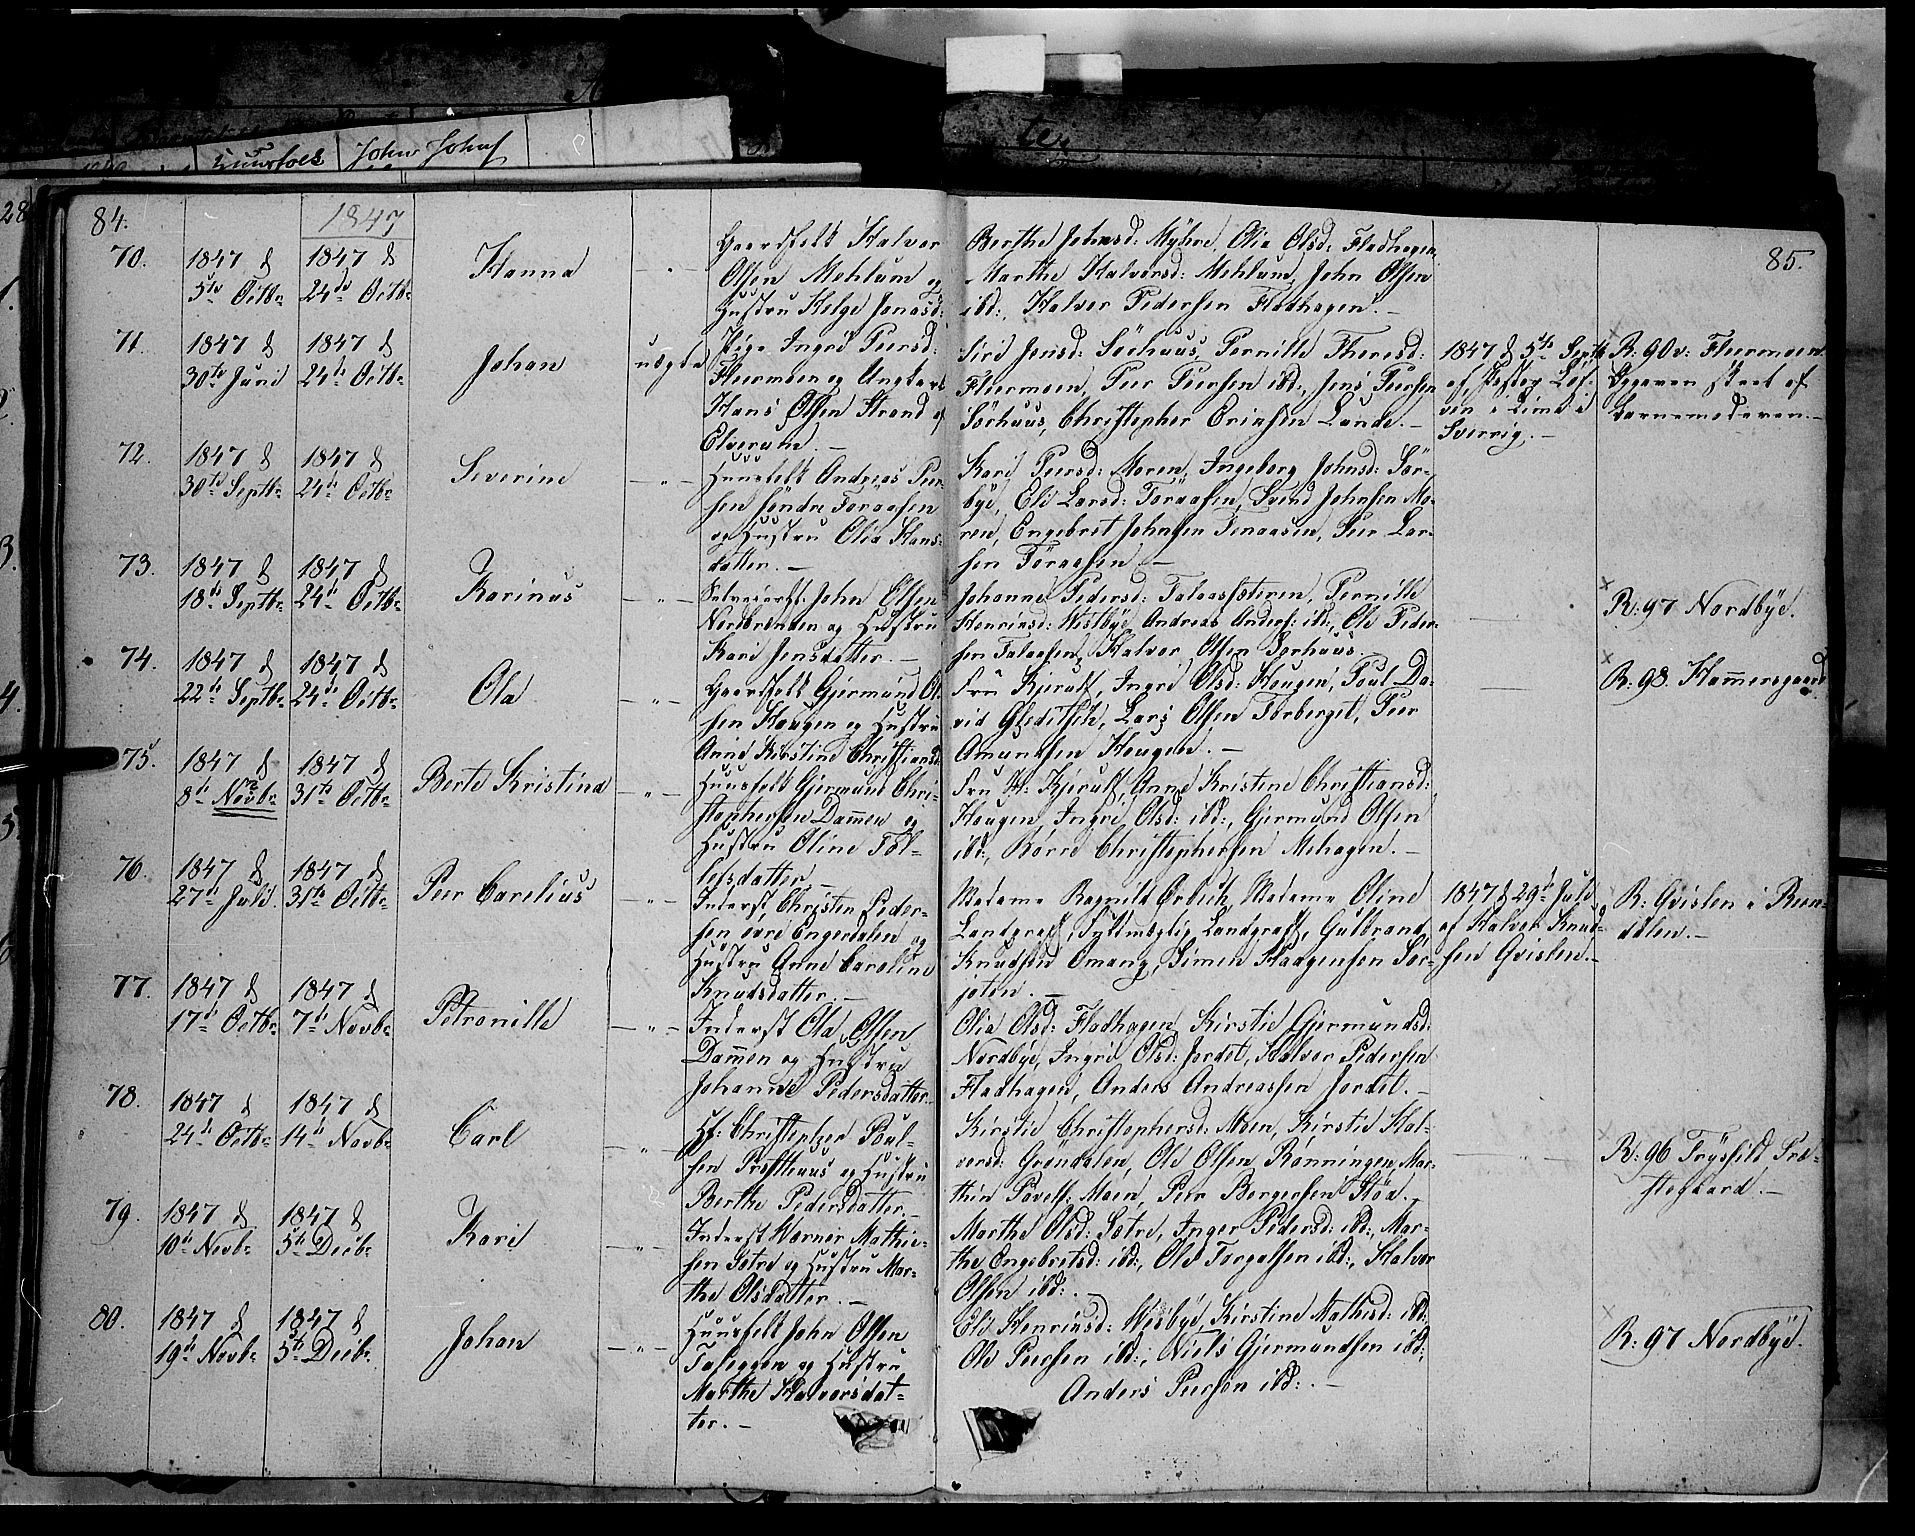 Huusfolk John Johns
te,
28
84.
1847
85.
70.
1847 d
5te Octbr
1847 d
24de Octbr
Hanna
— " —
Gaardfolk Halvor
Olsen Mehlum og
Hustru Helge Jonasd:
Berthe Johnsd: Myhre, Olia Olsd: Fladhagen,
Marthe Halvorsd: Mehlum, John Olsen
ibd:, Halvor Pedersen Fladhagen. —
71.
1847 d
30te Juni
1847 d
24de Octbr
Johan
uægte
Pige Ingri Peersd:
Flermoen og Ungkarl
Hans Olsen Strand af
Elverum. —
Siri Jensd: Sörhuus, Pernille Theresd:
Flermoen, Peer Peersen ibd:, Jens Peersen
Sörhuus, Christopher Erinsen Lunde. —
1847 d 5te Septb
af Pastor Löf-
ven i Lima i
Sverrig. —
R: 90 v: Flermoen
Opgaven skeet af
Barnemoderen. —
72.
1847 d
30te Septbr
1847 d
24de Octbr
Severine
— " —
Huusfolk Andreas Peer-
sen söndre Föraasen
og Hustru Olia Hans-
datter. —
Kari Peersd: Moren, Ingeborg Johnsd: Sör-
bye, Eli Larsd: Föraasen, Svend Johnsen Mo-
ren, Engebret Johnsen Tenaasen, Peer Lar-
sen Föraasen —
73.
1847 d
18de Septbr
1847 d
24de Octbr
Karinus
— " —
Selveierf: John Olsen
Nordbrenden og Hustru
Kari Jensdatter. —
Johanne Pedersd: Galaassæteren, Pernille
Henriksd: Westbye, Andreas Anders: ibd:, Ole Peder-
sen Galaasen, Halvor Olsen Sörhuus.
R: 97 Nordbye.
74.
1847 d
22de Septbr
1847 d
24de Octbr
Ola
— " —
Gaardfolk Gjermund Ol-
sen Haugen og Hustru
Anne Kirstine Christiansd:
Fru Kjerulf, Ingri Olsd: Haugen, Poul Da-
vid Gleditsch, Lars Olsen Torberget, Peer
Amundsen Haugen. —
R: 98. Hammersgaard
75.
1847 d
8de Novbr
1847 d
31te Octbr
Berte Kristina
— " —
Huusfolk Gjermund Chri-
stophersen Dammen og
Hustru Oline Tol-
lefsdatter —
Fru H: Kjerulf, Anne Kristine Christiansd:
Haugen, Ingri Olsd: ibd:, Gjermund Olsen
ibd:, Börre Christophersen Mehagen. —
76.
1847 d
27de Juli
1847 d
31te Octbr
Peer Carelius
— " —
Inderst Christen Peder-
sen övre Engerdalen og
Hustru Anne Caroline
Knudsdatter. —
Madame Ragnild Örbech, Madame Oline
Landgraff, Fuldmægtig Landgraff, Gulbrand
Knudsen Omang, Simen Haagensen Sör-
joten. —
1847 d 29de Juli
af Halvor Knud-
sen Qvislen. —
R: Qvislen i Ren-
dalen. —
77.
1847 d
17de Octbr
1847 d
7de Novbr
Petronille
— " —
Inderst Ola Olsen
Dammen og Hustru
Johanne Pedersdatter. —
Olia Olsd: Fladhagen, Kirstie Gjermundsd:
Nordbye, Ingri Olsd: Jordet, Halvor Pedersen
Fladhagen, Anders Andreassen Jordet. —
78.
1847 d
24de Octbr
1847 d
14de Novbr
Carl
— " —
Hf: Christopher Poul-
sen Præsthuus og Hustru
Berthe Pedersdatter. —
Kirstie Christophersd: Moen, Kirstie Hal-
vorsd: Gröndalen, Ole Olsen Rönningen, Mar-
thin Povels: Moen, Peer Borgersen Stöa. —
R: 96 Trysild Præ-
stegaard. —
79.
1847 d
10de Novbr
1847 d
5te Decbr
Kari
— " —
Inderst Warner Mathie-
sen Sætre og Hustru Mar-
the Olsdatter. —
Marthe Olsd: Sætre, Inger Pedersd: ibd:, Mar-
the Engebretsd: ibd:, Ole Torgalsen ibd:, Halvor
Olsen ibd: . —
80.
1847 d
19de Novbr
1847 d
5te Decbr
Johan
— " —
Huusfolk John Olsen
Galeggen og Hustru
Marthe Halvorsdat-
ter. —
Eli Henriksd: Wesbye, Kirstine Mathisd: ibd:,
Ole Peersen ibd:, Niels Gjermundsen ibd:,
Anders Peersen ibd: . —
R: 97 Nordbye.